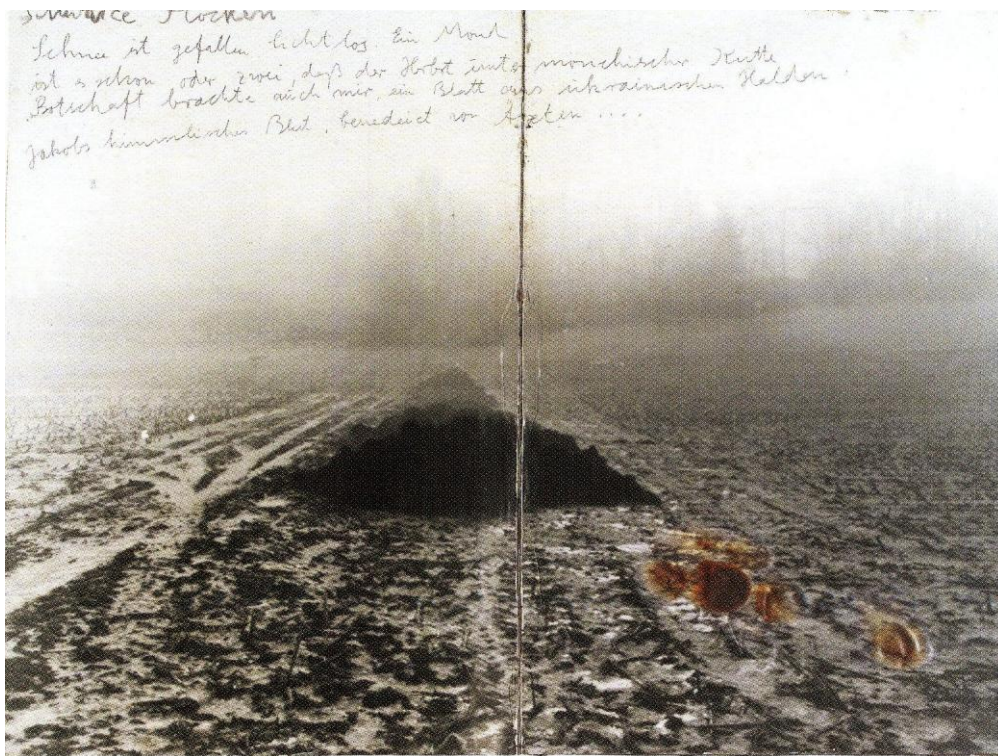 Schwarze Flocken
Schnee ist gefallen lichtlos. Ein Mond
ist es schon oder zwei, daß der Herbst unter mönchischer Kutte
Botschaft brachte auch mir, ein Blatt aus ukrainischen Halden.
jakobs himmlisches Blut, benedeiet von Äxten ....